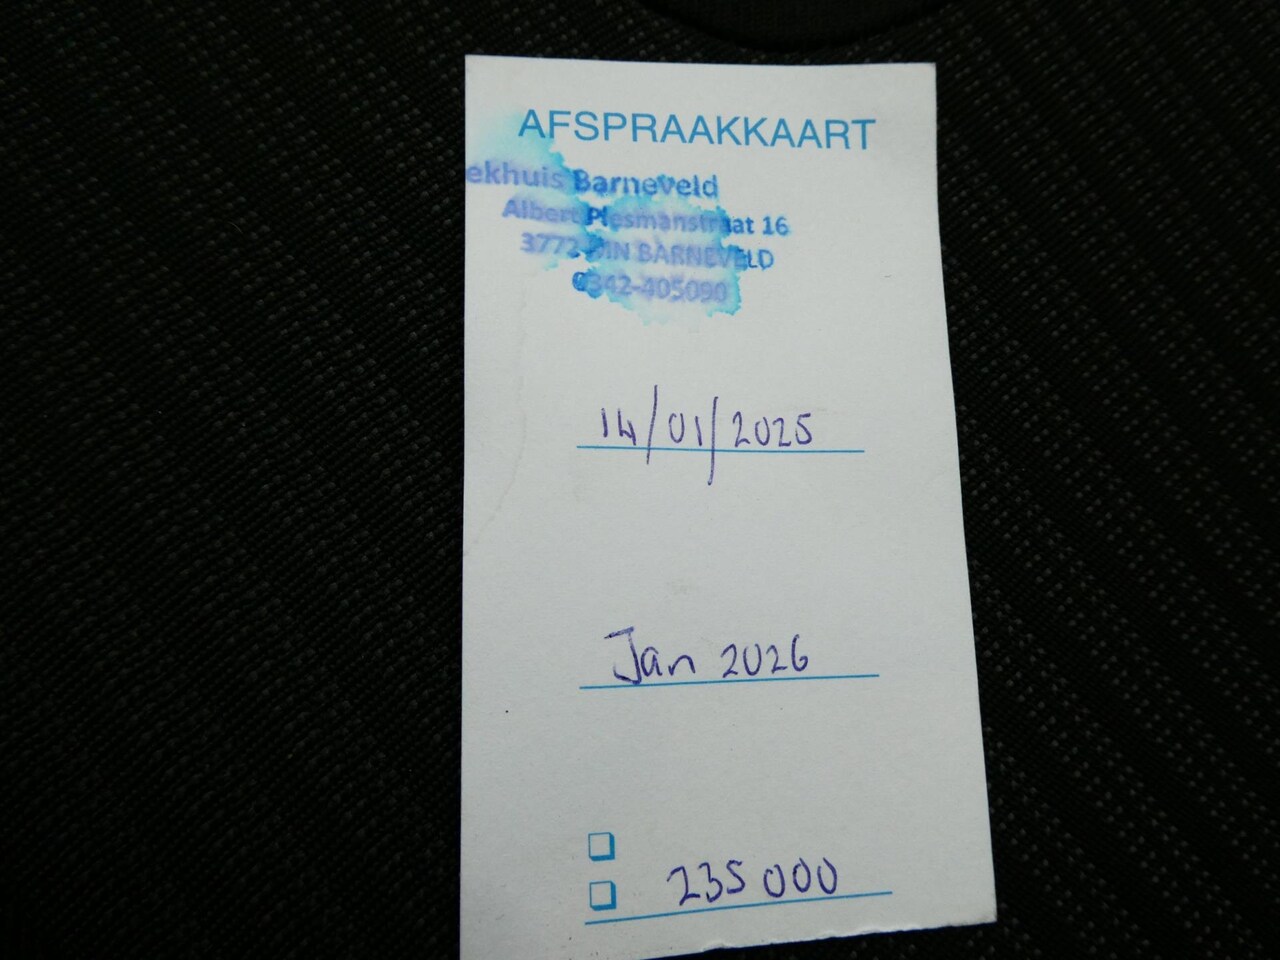 AFSPRAAKKAART
ekhuis Barneveld
Albert Plesmanstraat 16
3772 MN BARNEVELD
0342-405090
14/01/2025
Jan 2026
235000